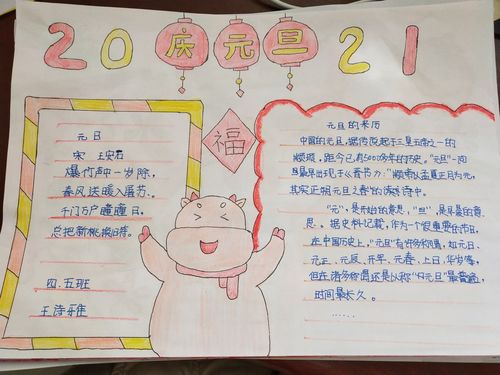 20庆元旦21
福
元日
宋 王安石
爆竹声中一岁除,
春风送暖入屠苏。
千门万户曈曈日,
总把新桃换旧符。
四.五班
王诗雅
元旦的来历
中国的元旦,据传说起于三皇五帝之一的
颛顼,距今已有5000多年的历史。"元旦"一词
最早出现于《晋书》:"颛帝以孟夏正月为元,
其实正朔元旦之春"的
"元",是开始的意思,"旦",是早晨的意
思。据史料记载,作为一个很重要的节日,
在中国历史上,"元旦"有许多称谓,如元日、
元正、元辰、开年、元春、上日、华岁等,
但在诸多称谓还是以称"元旦"最普遍,
时间最长久。
......